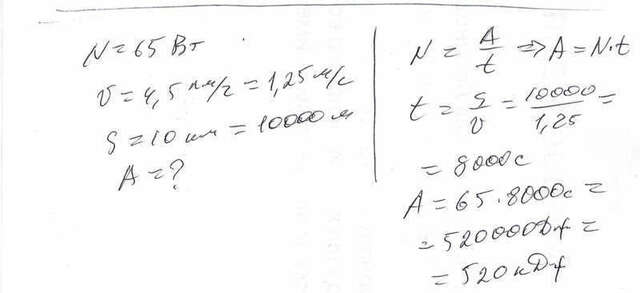 N = 65 Вт
v = 4,5 км/ч = 1,25 м/с
S = 10 км = 10000 м
A = ?
N = A/t ⇒ A = N·t
t = S/v = 10000/1,25 =
= 8000 с
A = 65·8000с =
= 520000 Дж =
= 520 кДж